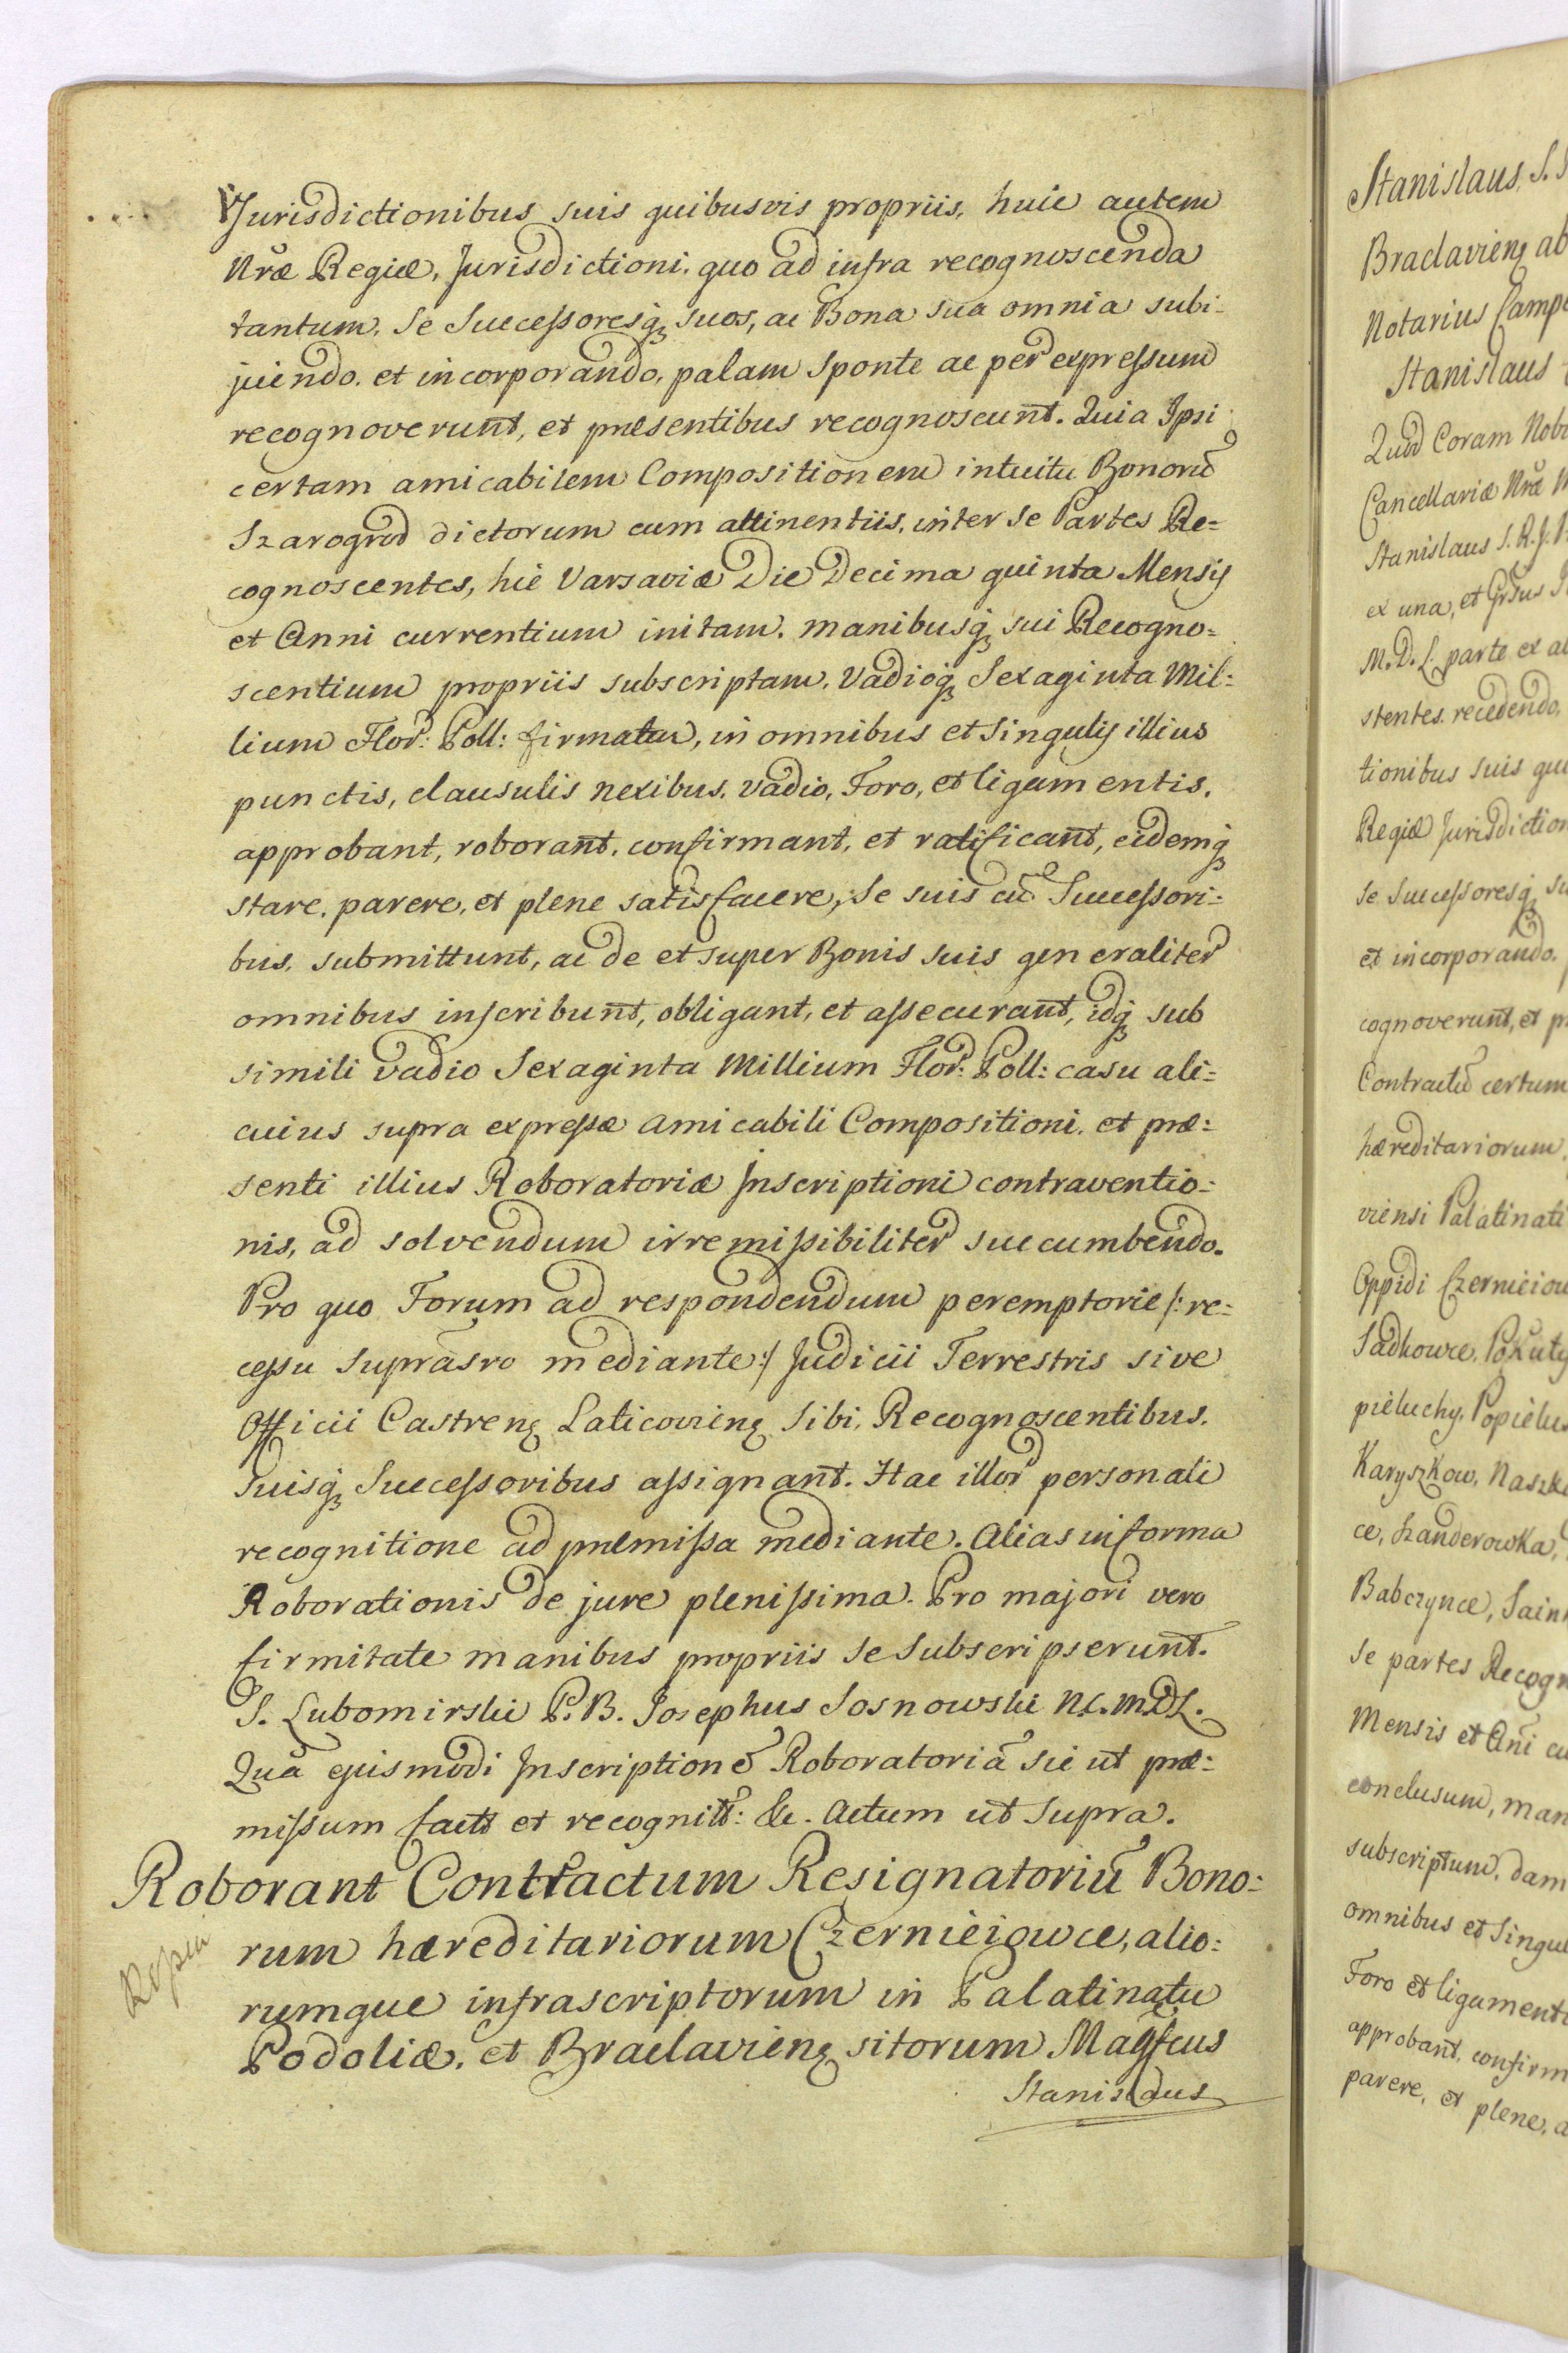 Jurisdictionibus suis quibusvis propriis, huic autem
Nræ Regiæ, Jurisdictioni, quo ad infra recognoscenda
tantum, Se Successoresq; suos, ac Bona sua omnia subi-
jciendo, et incorporando, palam Sponte ac per expressum
recognoverunt, et præsentibus recognoscunt. Quia Ipsi
certam amicabilem Compositionem intuitu Bonorū
Szarogrod dictorum cum attinentiis, inter Se Partes Re=
cognoscentes, hic Varsaviæ Die Decima quinta Mensis
et Anni currentium initam, manibusq; sui Recogno=
scentium propriis subscriptam, Vadioq; Sexaginta Mil=
lium Flor: Poll: firmatam, in omnibus et Singulis illius
punctis, clausulis nexibus, vadio, Foro, et ligamentis,
approbant, roborant, confirmant, et ratificant, eidemq;
stare, parere, et plene satisfacere, Se suis cū Successori=
bus, submittunt, ac de et super Bonis suis generaliter
omnibus inscribunt, obligant, et assecurant, idq; sub
simili vadio Sexaginta Millium Flor: Poll: casu ali=
cuius supra expressæ amicabili Compositioni, et præ=
senti illius Roboratoriæ Inscriptioni contraventio=
nis, ad solvendum irremissibiliter succumbendo.
Pro quo Forum ad respondendum peremptorie /: re=
cessu suprasro mediante :/ Judicii Terrestris sive
Officii Castren; Laticovien; Sibi, Recognoscentibus,
Suisq; Successoribus assignant. Hac illor personali
recognitione ad præmissa mediante. Alias in forma
Roborationis de jure plenissima. Pro majori vero
firmitate manibus propriis Se Subscripserunt.
S. Lubomirski P. B. Josephus Sosnowski N.C.M.D.L.
Quā ejusmodi Inscriptionē Roboratoriā sic ut præ=
missum factt et recognitt: &c. Actum ut Supra.
Roborant Contractum Resignatoriū Bono=
rum hæreditariorum Czernieiowce, alio=
rumque infrascriptorum in Palatinatu
Podoliæ, et Braclavien; sitorum Magfcus
Stanislaus
Stanislaus, S.
Braclavien; ab
Notarius Camp
Stanislaus
Quod Coram Nob
Cancellariæ Nræ
Stanislaus S. R. J.
ex una, et
M. D. L. parte ex al
stentes, recedendo,
tionibus suis qui
Regiæ Jurisdiction
Se Successoresq; su
et incorporando,
cognoverunt, et pr
Contractū certum
hæreditariorum,
viensi Palatinati
Oppidi Czernieiow
Sadkowce,
pieluchy, Popielu
Karyszkow, Naszk
ce, Szanderowka,
Babczynce,
Se partes Recogn
Mensis et Ani cu
conclusum, man
subscriptum,
omnibus et Singul
Foro et ligamenti
approbant, confirm
parere, et plene, a